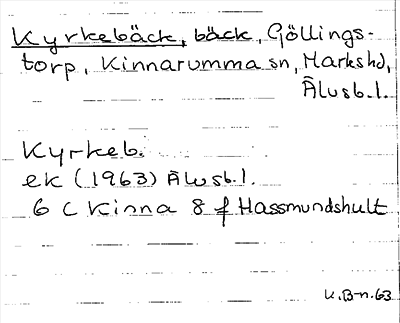 Kyrkebäck, bäck, Göllings-
torp, Kinnarumma sn, Markshd,
Älvsb.l.
Kyrkeb.
ek (1963) Älvsb.l.
6 C Kinna 8 f Hassmundshult
K.B-n.63